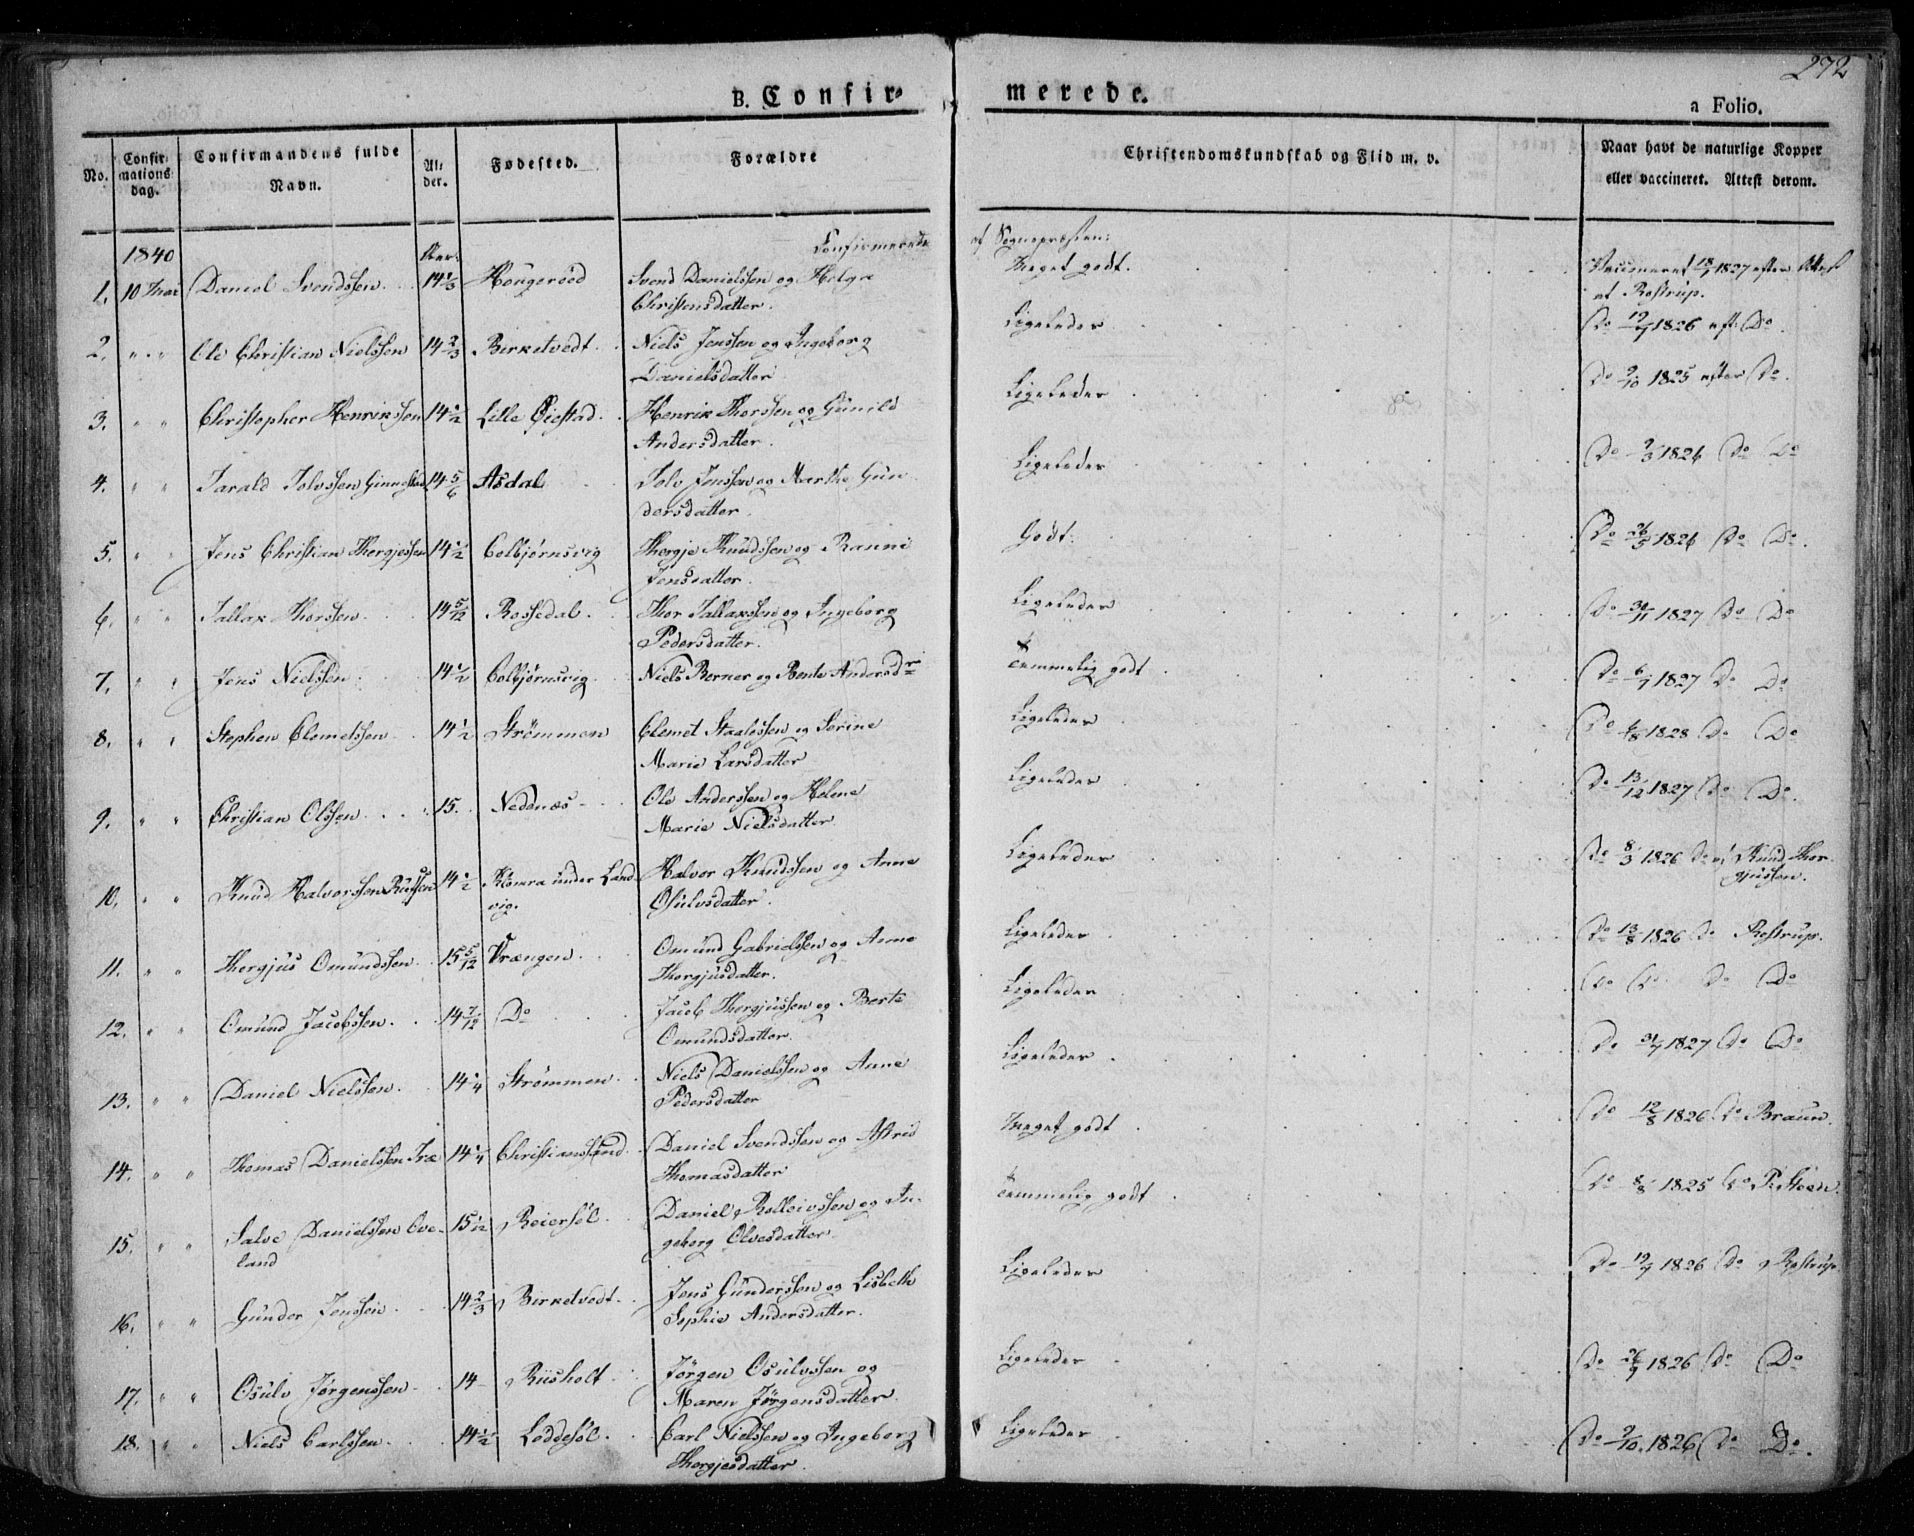 272
B. Confir-
merede.
a Folio.
No.
Confir-
mations
dag.
Confirmandens fulde
Navn.
Al-
der.
Fødested.
Forældre
Christendomskundskab og Flid m. v.
Naar havt de naturlige Kopper
eller vaccineret. Attest derom.
1840
Aar.
Confirmerede
af Sognepræsten:
1. 10 Mai Daniel Svendssen 14 2/3 Hougeröed Svend Danielssen og Helge
Christensdatter.
Meget godt. Vaccineret 18/7 1827 efter Attest
af Rostrup.
2. " " Ole Christian Nielssen 14 2/3 Birketvedt Niels Jenssen og Ingeborg
Danielsdatter
Ligeledes Do 19/7 1826 eft. Do
3. " " Christopher Henrikssen 14 1/2 Lille Øiestad Henrik Thorssen og Gunild
Andersdatter.
Ligeledes Do 9/10 1825 efter Do.
4. " " Tarald Tolvssen 14 5/6 Asdal Tolv Jenssen og Marthe Gun
dersdatter.
Ligeledes Do 9/3 1826 Do Do
5. " " Jens Christian Thergjessen 14 1/2 Colbjørnsvig Thergje Knudssen og Ranni
Jensdatter.
Godt. Do 26/5 1826 Do Do.
6. " " Tallax Thorssen 14 5/12 Rossedal Thor Tallaxssen og Ingeborg
Pedersdatter.
Ligeledes Do 30/11 1827 Do Do
7. " " Jens Nielssen 14 1/2 Colbjørnsvig Niels Berner og Bente Andersdr
Temmelig godt Do 6/7 1827 Do Do
8. " " Stephen Clemetssen 14 1/2 Strömmen Clemet Staalessen og Serine
Marie Larsdatter
Ligeledes Do 6/8 1828 Do Do
9. " " Christian Olssen 15. Nedenæs Ole Anderssen og Helene
Marie Nielsdatter
Ligeledes Do 13/12 1827 Do Do.
10. " " Knud Halvorssen Russen 14 1/2 under Land
vig. Halvor Knudssen og Anne
Osulvsdatter.
Ligeledes Do 8/3 1826 Do af Knud Thor
gjussen.
11. " " Thergjus Omundssen 15 5/12 Vrængen Omund Gabrielssen og Anne
Thorgjusdatter.
Ligeledes Do 13/8 1826 Do Rostrup.
12. " " Omund Jacobssen 14 7/12 Do Jacob Thergjussen og Berte
Omundsdatter
Ligeledes Do Do Do Do
13. " " Daniel Nielssen 14 1/4 Strömmen Niels Danielssen og Anne
Pedersdatter
Ligeledes Do 31/7 1827 Do Do
14. " " Thomas Danielssen Træ 14 1/4 Christianssand Daniel Svendssen og Astrid
Thomasdatter
Meget godt Do 12/8 1826 Do Braun.
15. " " Salve Danielssen Eve-
land 15 1/12 Reiersöl Daniel Rolleivssen og In-
geborg Olvesdatter
Temmelig godt Do 8/8 1825 Do P. Steen.
16. " " Gunder Jenssen 14 2/3 Birketvedt Jens Gunderssen og Lisbeth
Sophie Andersdatter.
Ligeledes Do 19/7 1826 Do Rostrup
17. " " Osulv Jörgenssen 14 Riisholt Jörgen Osulvssen og
Maren Jörgensdatter
Ligeledes Do 26/9 1826 Do Do
18. " " Niels Carlssen 14 1/2 Löddesöl Carl Nielssen og Ingeborg
Thergjesdatter
Ligeledes Do 9/10 1826 Do Do.